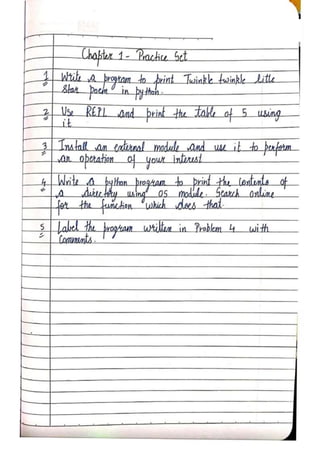 Chapter 1 - Practice Set
1 Write a program to print Twinkle twinkle little
star poem in python.
2 Use REPL and print the table of 5 using
it
3 Install an external module and use it to perform
an operation of your Interest
4 Write a python program to print the contents of
a directory using OS module. Search online
for the function which does that.
5 Label the program written in Problem 4 with
Comments.